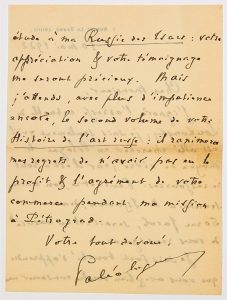 étude à ma Russie des Tsars : votre
appréciation & votre témoignage
me seront précieux. Mais
j'attends, avec plus d'impatience
encore, le second volume de votre
Histoire de l'art russe : il ranimera
mes regrets de n'avoir pas eu le
profit & l'agrément de votre
commerce pendant ma mission
à Pétrograd.
Votre tout dévoué,
Paléologue